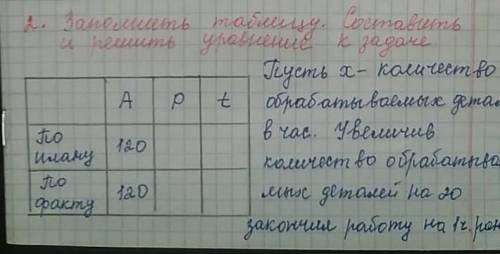 2. Заполнить таблицу. Составить
и решить уравнение к задаче
A P t
По плану 120
По факту 120
Пусть x - количество
обрабатываемых детал
в час. Увеличив
количество обрабатыва
мых деталей на 20
закончил работу на 1ч. ран